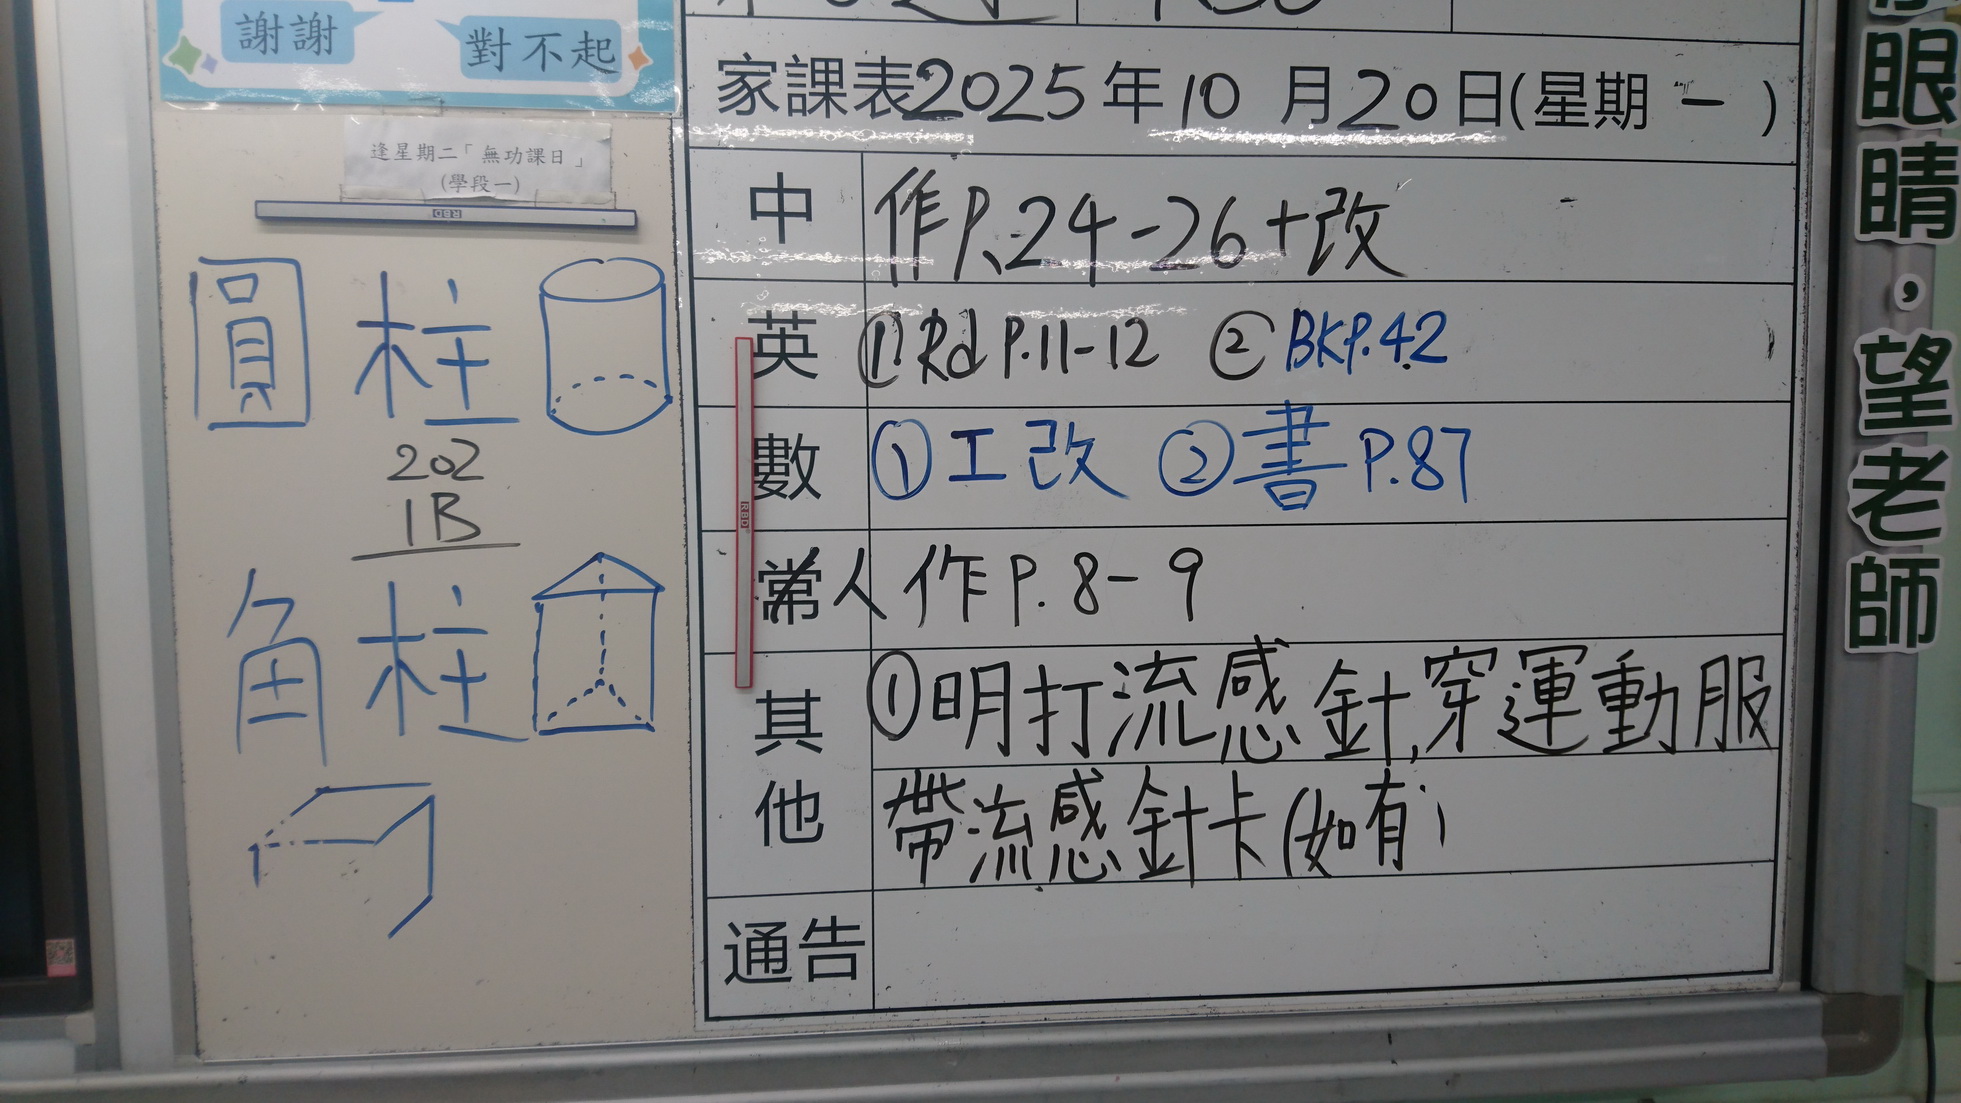 謝謝
對不起
逢星期二「無功課日」
(學段一)
RBD
圓柱
202
1B
角柱
家課表2025年10月20日(星期一)
中 作P.24-26+改
英 ①Rd P.11-12 ②BKP.42
數 ①工改 ②書P.87
RBD
常人 作P.8-9
其他 ①明打流感針,穿運動服
帶流感針卡(如有)
通告
眼睛，望老師